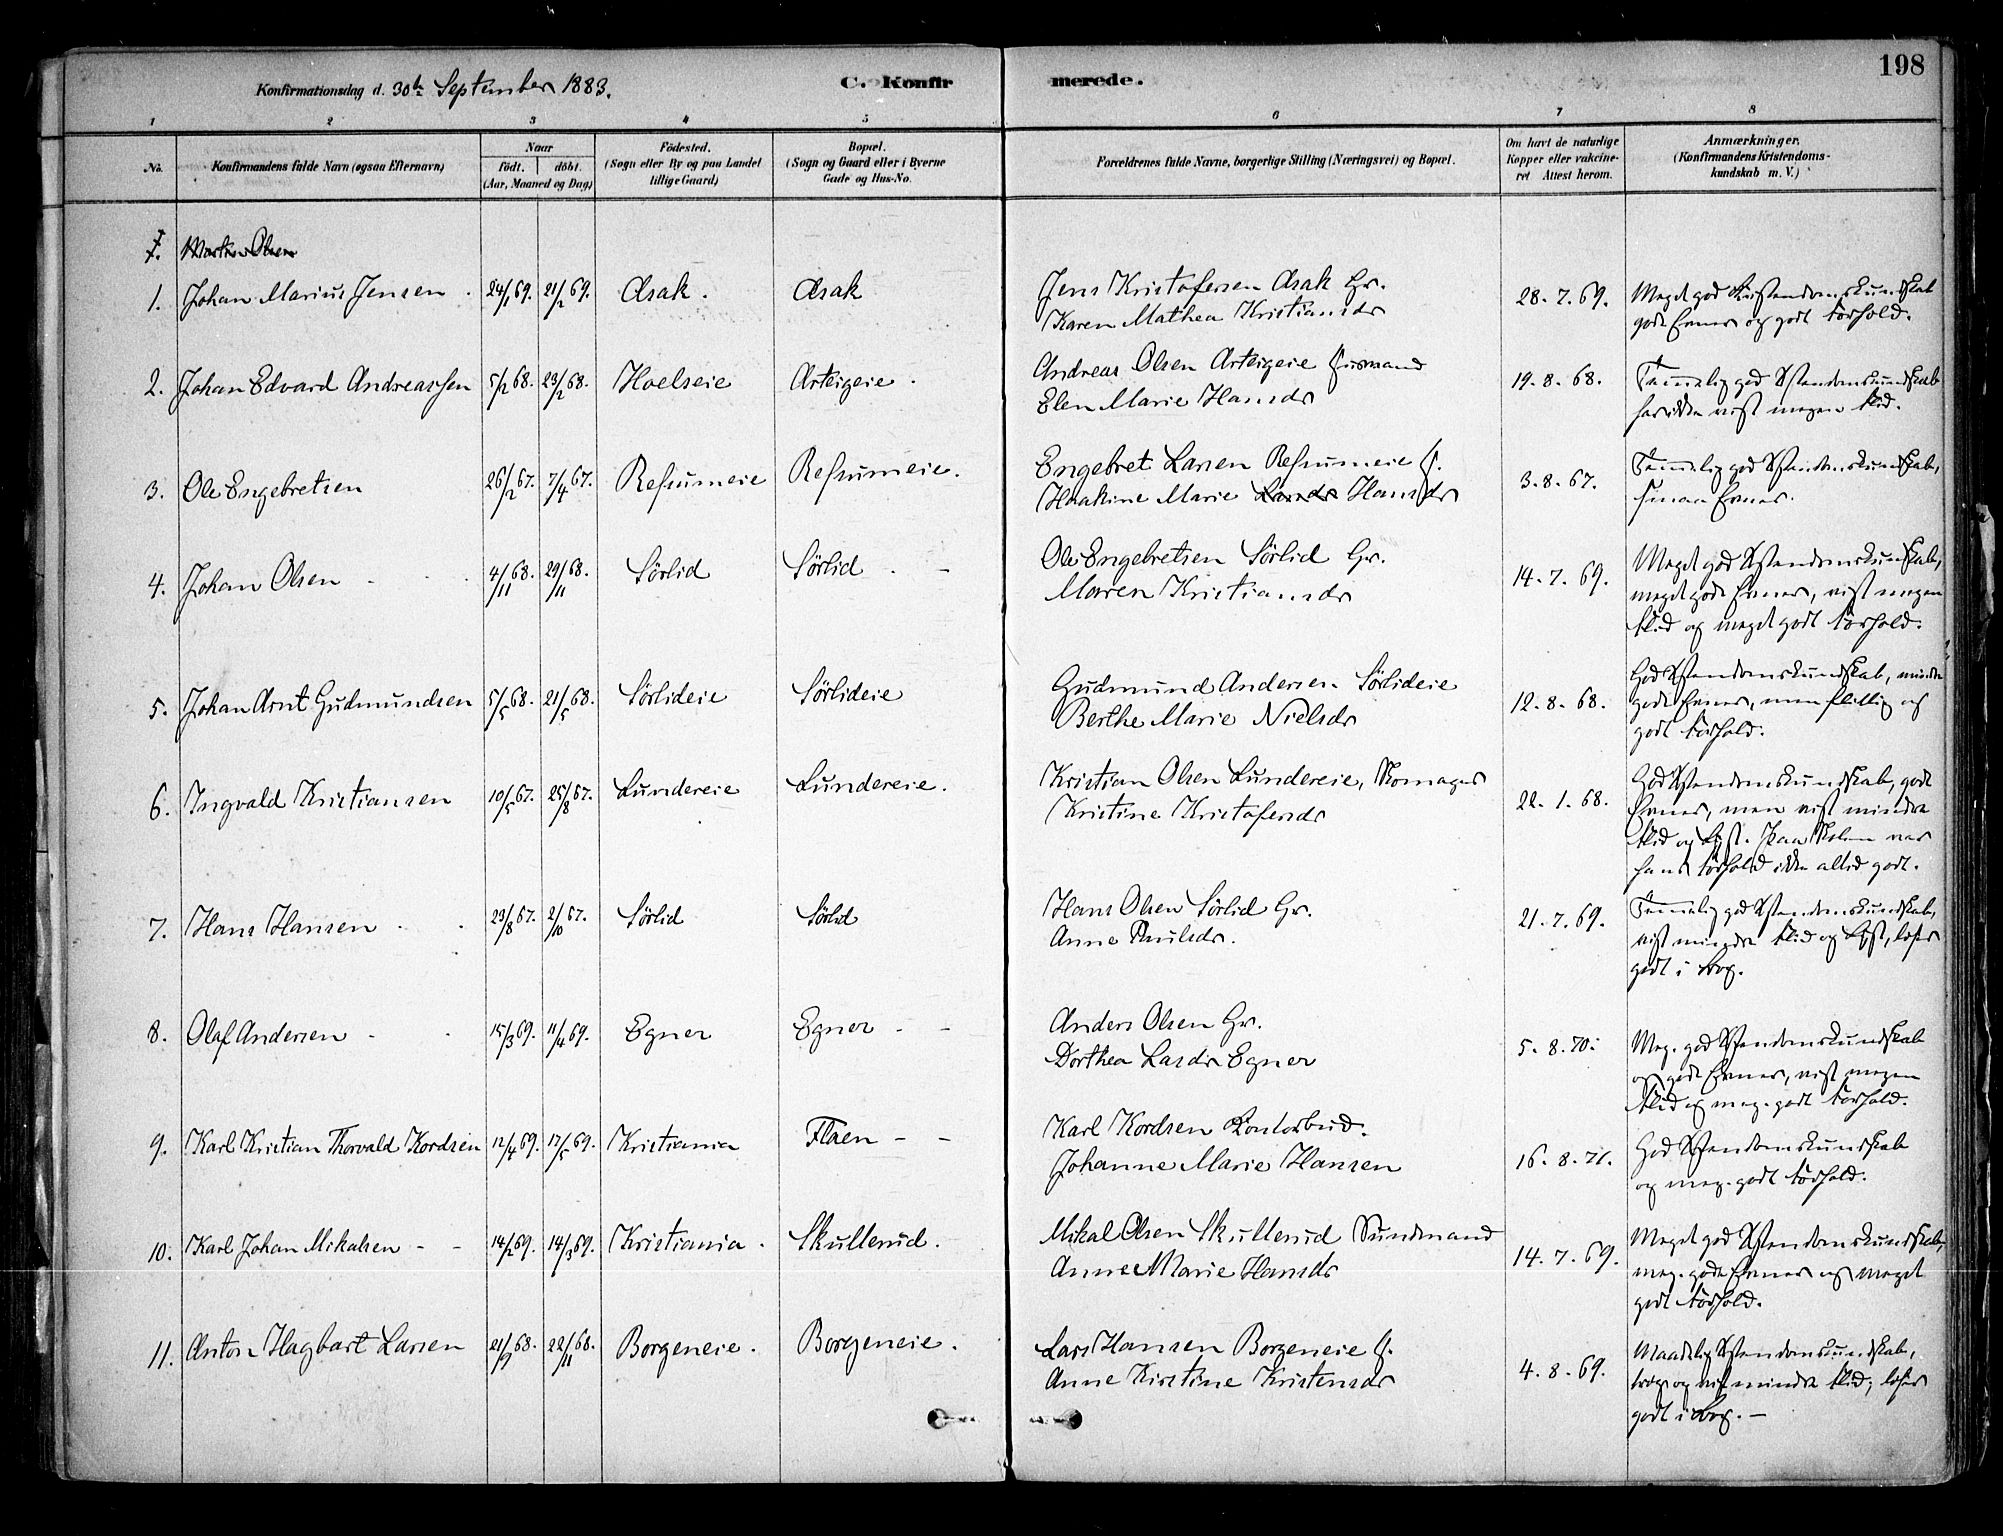 198
Konfirmationsdag d. 30te September 1883.
C. Konfirmerede.
1 2 3 4 5 6 7 8
No.
Konfirmandens fulde Navn (ogsaa Efternavn)
Naar
født. døbt.
(Aar, Maaned og Dag)
Fødested.
(Sogn eller By og paa Landet
tillige Gaard)
Bopæl.
(Sogn og Gaard eller i Byerne
Gade og Hus-No.
Forældrenes fulde Navne, borgerlige Stilling (Næringsvei) og Bopæl.
Om havt de naturlige
Kopper eller vakcine-
ret Attest herom.
Anmærkninger.
(Konfirmandens Kristendoms-
kundskab m. V.)
I
1. Martin Olsen
1. Johan Marius Jensen 24/1 69. 21/2 69. Asak. Asak
Jens Kristofersen Asak Gr.
Karen Mathea Kristiansdr
28-7.69.
Meget god Kristendomskundskab
gode Evner og godt Forhold.
2. Johan Edvard Andreassen 5/1 68. 23/2 68. Hoelseie Arteigeie.
Andreas Olsen Arteigeie Husmand
Elen Marie Hansdr
19-8-68.
Temmelig god Xstendomskundskab
har ikke vist megen Flid.
3. Ole Engebretsen 26/2 67. 7/4 67. Refsumeie Refsumeie.
Engebret Larsen Refsumeie H.
Haakine Marie Larsdr Hansdr
3-8-67.
Temmelig god Xstendomskundskab,
smaa Evner.
4. Johan Olsen 4/11 68. 29/11 68. Sørlid Sørlid
Ole Engebretsen Sørlid Gr.
Maren Kristiansdr
14-7.69.
Meget god Xstendomskundskab,
meget gode Evner, vist megen
Flid og meget godt Forhold.
5. Johan Arnt Gudmundsen 5/5 68. 21/5 68. Sørlideie Sørlideie
Gudmund Andersen Sørlideie
Berthe Marie Nielsdr
12-8-68.
God Xstendomskundskab, mindre
gode Evner, men flittig og
godt Forhold.
6. Ingvald Kristiansen 10/5 67. 25/8 67. Lundereie Lundereie.
Kristian Olsen Lundereie, Skomager
Kristine Kristofersdr
22-1-68.
God Xstendomskundskab, gode
Evner, men vist mindre
Flid og Lyst. Paa Skolen var
hans Forhold ikke altid godt.
7. Hans Hansen 23/8 67. 2/10 67. Sørlid Sørlid
Hans Olsen Sørlid Gr.
Anne Paulsdr.
21-7.69.
Temmelig god Xstendomskundskab,
vist mindre Flid og Lyst, læser
godt i Bog.
8. Olaf Andersen 15/3 69. 11/4 69. Egner Egner
Anders Olsen Gr.
Dorthea Larsdr Egner
5-8.70.
Meg. god Xstendomskundskab
og gode Evner, vist megen
Flid og meg. godt Forhold.
9. Karl Kristian Thorvald Kordsen 12/4 69. 17/5 69. Kristiania Flaen
Karl Kordsen Kontorbud.
Johanne Marie Hansen
16-8.71.
God Xstendomskundskab
og meg. godt Forhold.
10. Karl Johan Mikalsen 14/2 69. 14/3 69. Kristiania. Skullerud.
Mikal Olsen Skullerud Sundmand
Anne Marie Hansdr
14-7.69.
Meget god Xstendomskundskab,
meg. gode Evner og meget
godt Forhold.
11. Anton Hagbart Larsen 21/9 68. 22/11 68. Borgeneie. Borgeneie.
Lars Hansen Borgeneie H.
Anne Kirstine Kristensdr
4-8-69.
Maadelig Xstendomskundskab,
og vist mindre Flid; læser
godt i Bog.